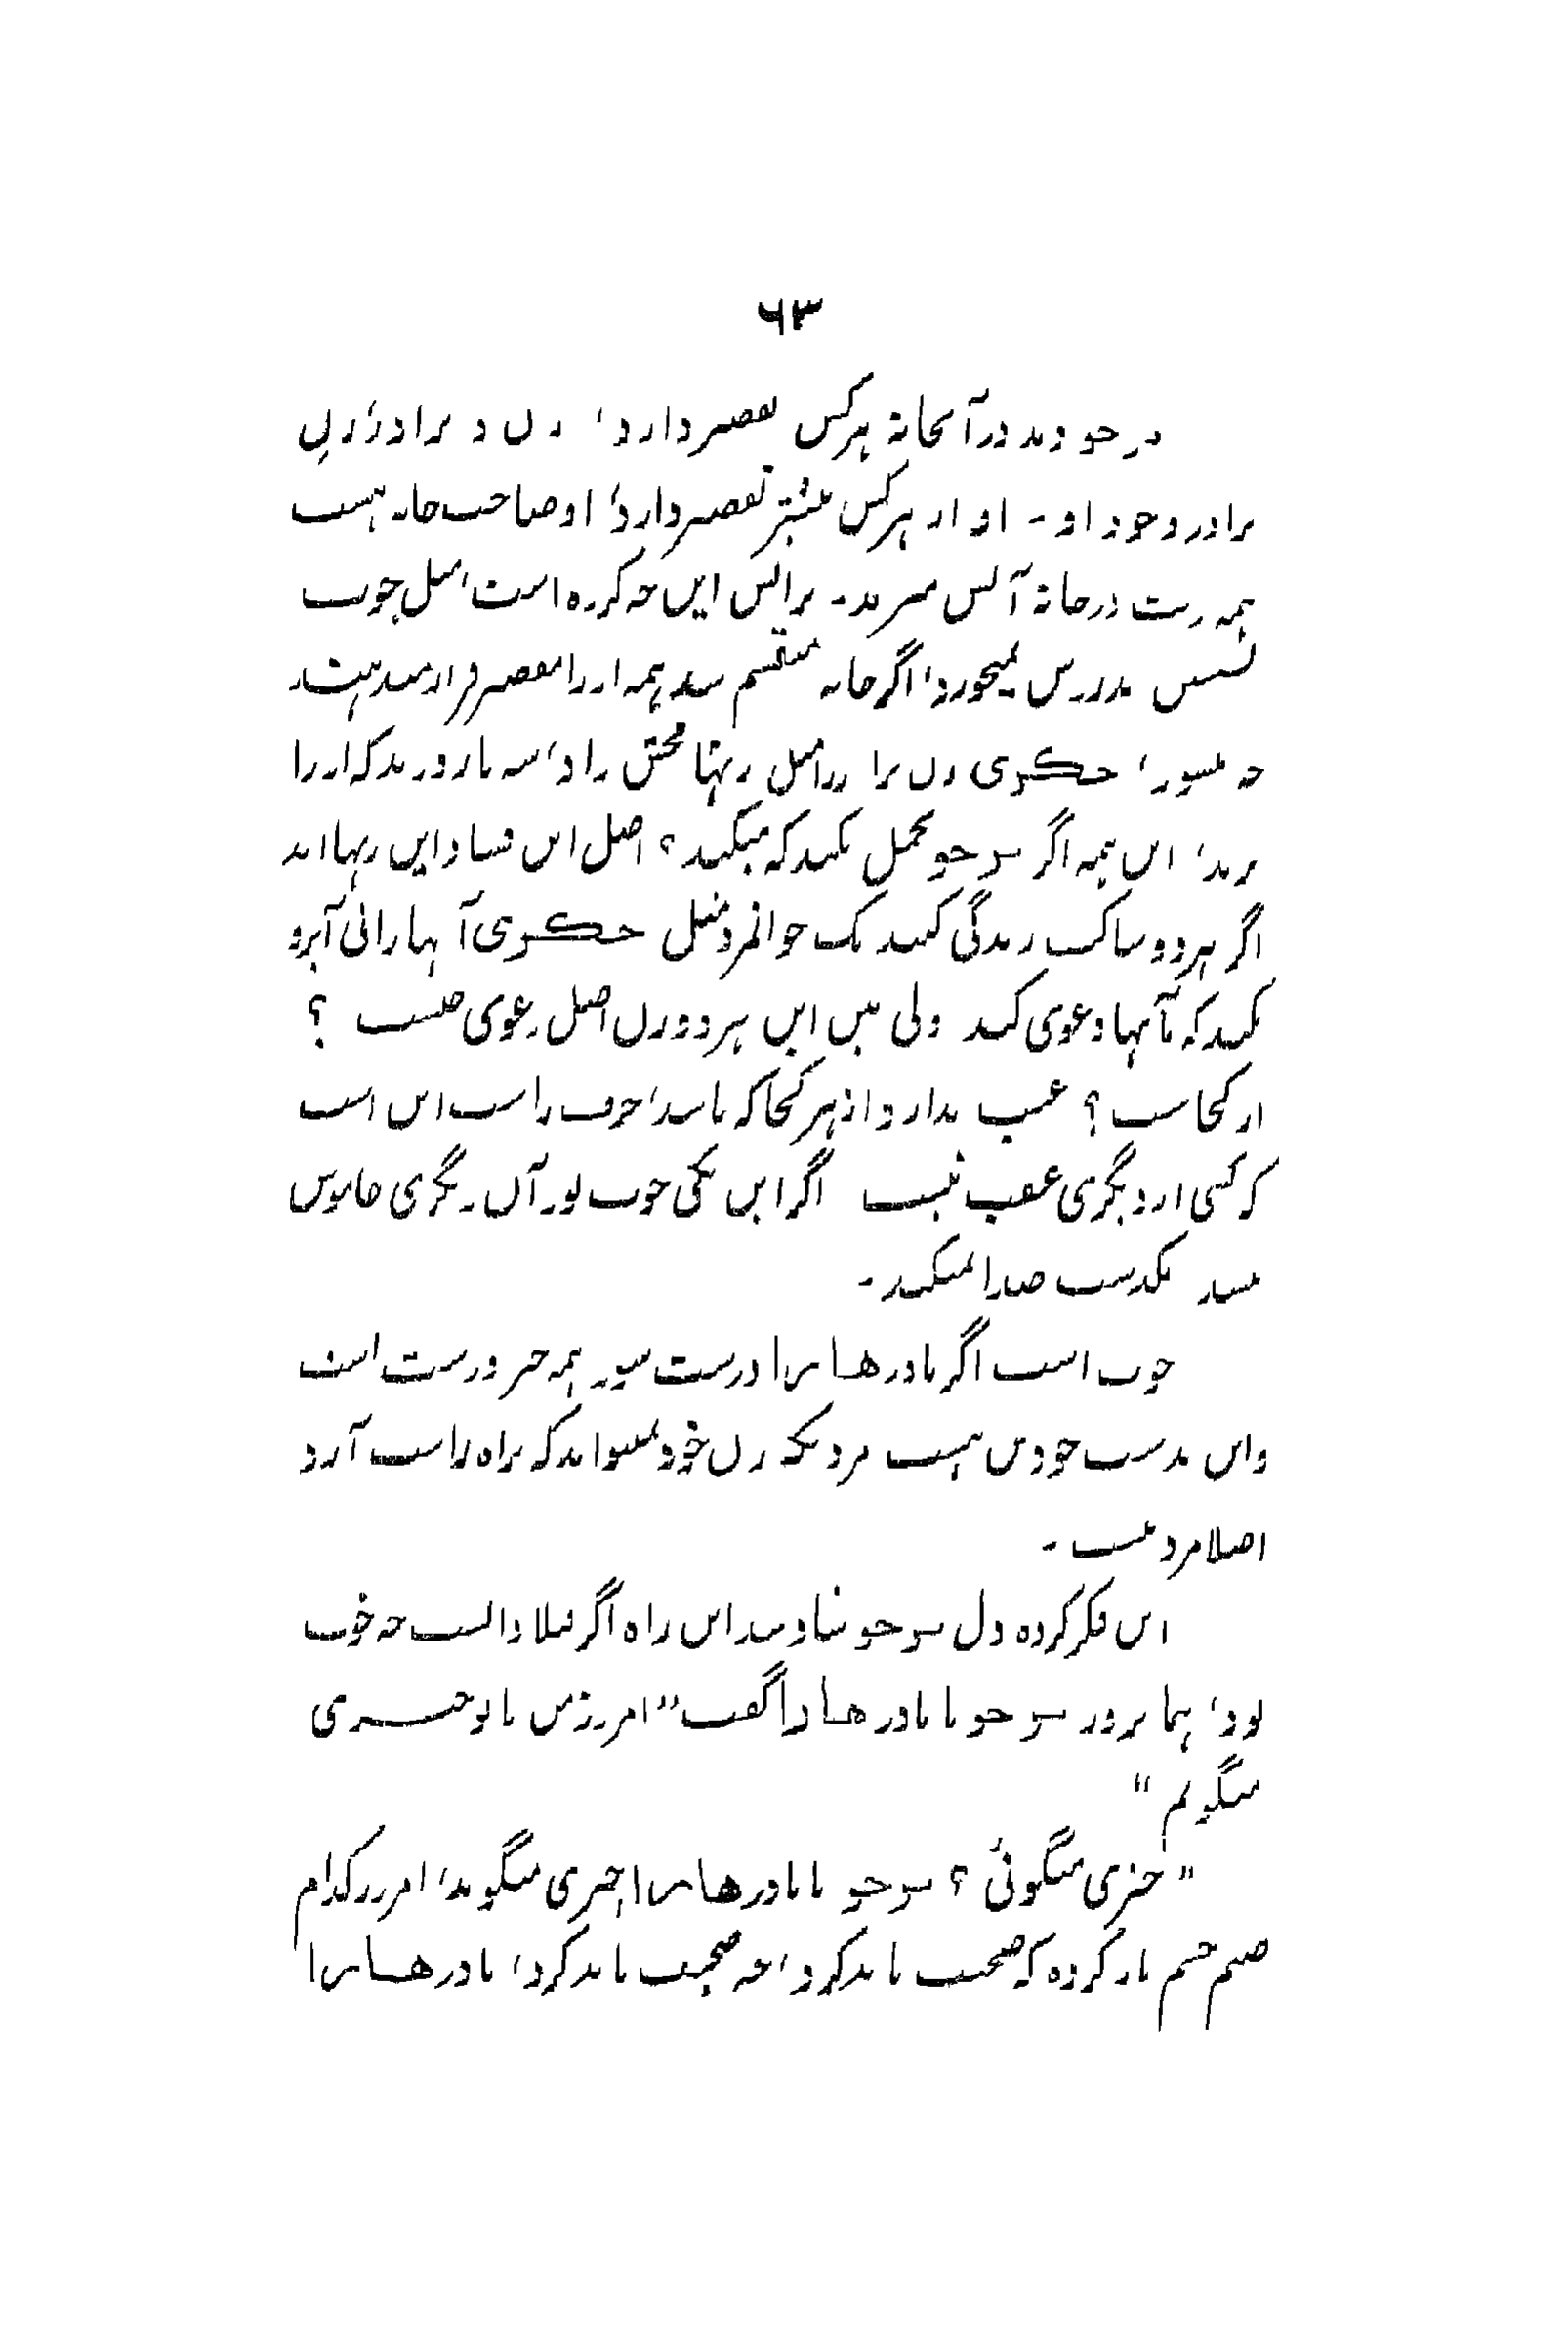 ۶۳
در خود دید در آنخانه هرکس تقصیر دارد، زن و برادر، زن
برادر و خود او ـ او از هرکس بیشتر تقصیر دارد، او صاحب خانه هست
همه رست در خانهٔ آتش میبرند ـ برائش این چه کرده است،
بدرس نمیخورد، اگر خانه منقسم شد همه او را مقصر قرار میدهند
چه میشود، حکری زن را در اصل تنها محق داد، سه بار دزدید که او را
بزند، این همه اگر سوجو تحمل نکند که میکند؟ اصل این فساد این زنها اند
اگر هر دو ساکت زندگی کنند یک جوانمرد مثل حکری آنها را بی آبرو
نکند که با آنها دعوی کند ولی بین این هر دو زن اصل دعوی چیست ؟
از کجاست ؟ عیب ندارد از هر کجا که باشد، حرف راست این است
که کسی از دیگری عقب نیست اگر این یکی خوب بود آن دیگری خاموش
میشد یکدست صدا نمیکند ـ
خوب است اگر مادر هارا درست شود همه چیز درست است
و این بدست خودش هست مردیکه زن خود نمیتواند که براه راست آرد
اصلا مرد نیست ـ
این فکر کرده دل سوجو شاد شد این راه اگر قبلا دانست چه خوب
بود، همان روز سوجو با مادر هارا گفت "امروز من با تو چیزی
میگویم"
"چیزی میگوئی ؟ سوجو با مادر هارا چیزی میگوید، امروز کدام
صنم چشم باز کرده که صحبت باید کرد، چه صحبت باید کرد، مادر هارا